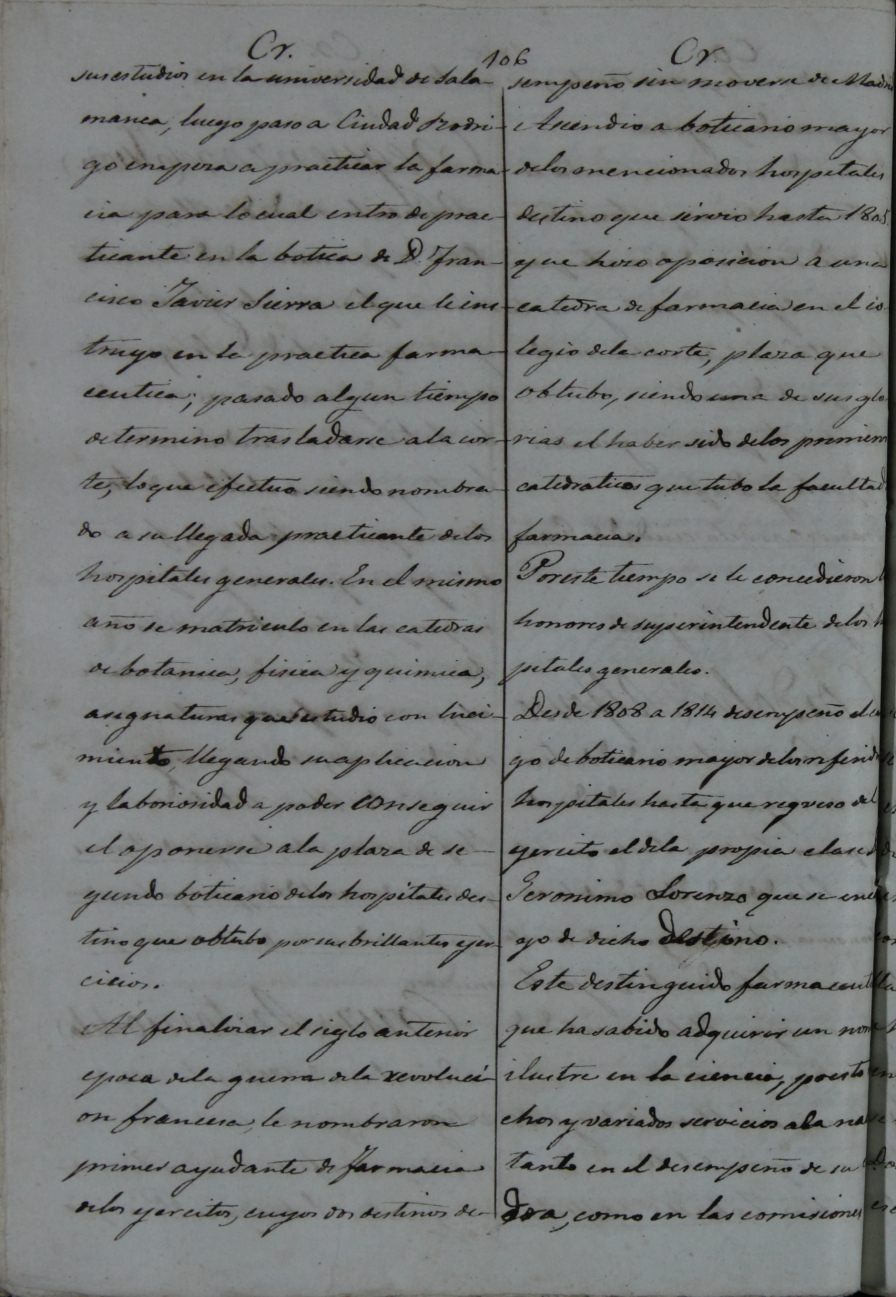 Cr.
106
Cr
sus estudios en la universidad de Sala-
manca, luego paso a Ciudad Rodri-
go empeza a practicar la farma-
cia para lo cual entro de prac-
ticante en la botica de D. Fran-
cisco Javier Sierra el que le ins-
truyo en la practica farma-
ceutica; pasado algun tiempo
determino trasladarse a la cor-
te, lo que efectuo siendo nombra-
do a su llegada practicante de los
hospitales generales. En el mismo
año se matriculo en las catedras
de botanica, fisica y quimica,
asignaturas que estudio con luci-
miento, llegando su aplicacion
y laboriosidad a poder conseguir
el oponerse a la plaza de se-
gundo boticario de los hospitales des-
tino que obtubo por sus brillantes ejer-
cicios.
Al finalizar el siglo anterior
epoca de la guerra de la revoluci-
on francesa, le nombraron
primer ayudante de farmacia
de los ejercitos, cuyos dos destinos de-
sempeño sin moverse de Madri
Ascendio a boticario mayor
de los mencionados hospitales
destino que sirvio hasta 1805
que hizo oposicion a una
catedra de farmacia en el co-
legio de la corte, plaza que
obtubo, siendo una de sus glo-
rias el haber sido de los primero
catedraticos que tubo la facultad
farmacia.
Por este tiempo se le concedieron
honores de superintendente de los h
pitales generales.
Desde 1808 a 1814 desempeño el
go de boticario mayor de los referid
hospitales hasta que regreso del
ejercito el de la propia clase
Geronimo Lorenzo que se enc
go de dicho destino.
Este distinguido farmaceut
que ha sabido adquirir un nom
ilustre en la ciencia, presto
chos y variados servicios a la na
tanto en el desempeño de su
dra, como en las comisiones